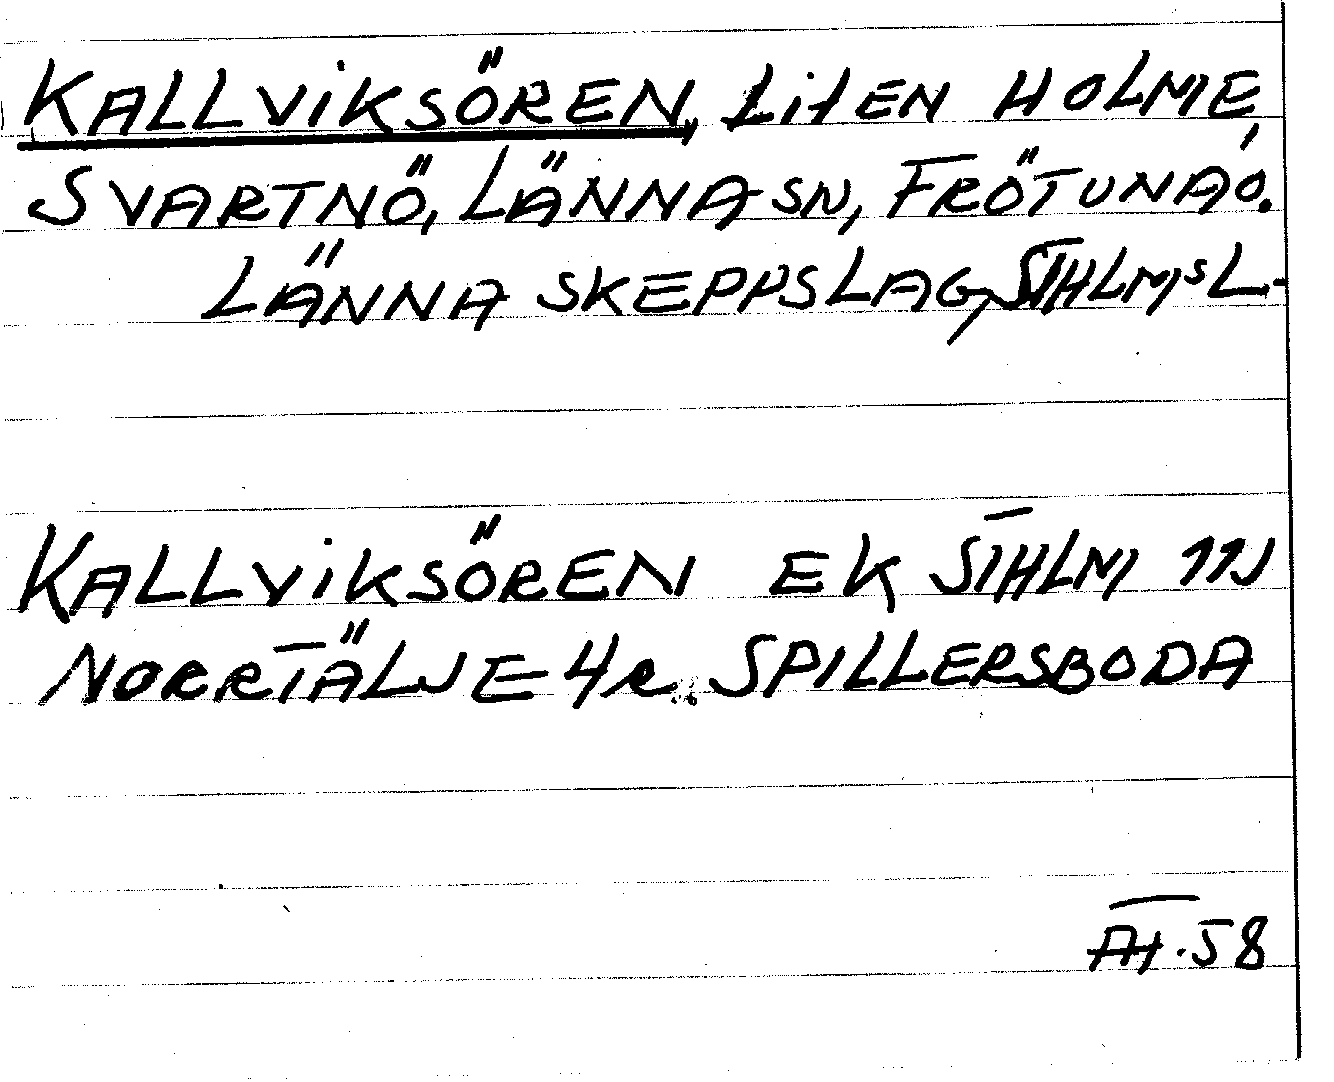 KALLVIKSÖREN, LITEN HOLME,
SVARTNÖ, LÄNNA SN, FRÖTUNA O.
LÄNNA SKEPPSLAG, STHLMS L.
KALLVIKSÖREN EK STHLM 11J
NORRTÄLJE 4c. SPILLERSBODA
58